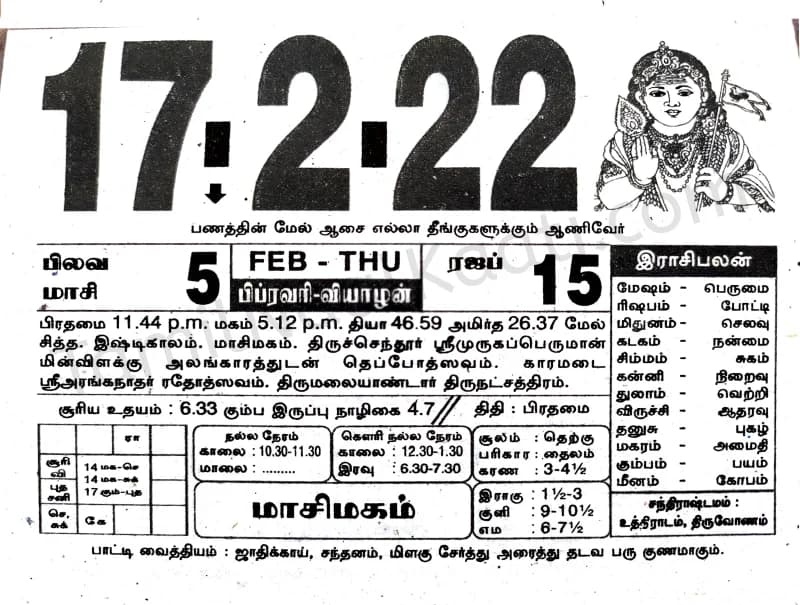 17.2.22
பணத்தின் மேல் ஆசை எல்லா தீங்குகளுக்கும் ஆணிவேர்
பிலவ
மாசி 5
FEB - THU
பிப்ரவரி-வியாழன்
ரஜப் 15
பிரதமை 11.44 p.m. மகம் 5.12 p.m. தியா 46.59 அமிர்த 26.37 மேல்
சித்த. இஷ்டிகாலம். மாசிமகம். திருச்செந்தூர் ஸ்ரீமுருகப்பெருமான்
மின்விளக்கு அலங்காரத்துடன் தெப்போத்ஸவம். காரமடை
ஸ்ரீஅரங்கநாதர் ரதோத்ஸவம். திருமலையாண்டார் திருநட்சத்திரம்.
சூரிய உதயம் : 6.33 கும்ப இருப்பு நாழிகை 4.7 // திதி : பிரதமை
ரா
சூரி
வி
புத
சனி
செ,
சுக்
கே
14 மக-செ
14 மக-சுக்
17 கும்-புத
நல்ல நேரம்
காலை : 10.30-11.30
மாலை : .........
கௌரி நல்ல நேரம்
காலை : 12.30-1.30
இரவு : 6.30-7.30
மாசிமகம்
சூலம் : தெற்கு
பரிகார : தைலம்
கரண : 3-4½
இராகு : 1½-3
குளி : 9-10½
எம : 6-7½
இராசிபலன்
மேஷம் - பெருமை
ரிஷபம் - போட்டி
மிதுனம் - செலவு
கடகம் - நன்மை
சிம்மம் - சுகம்
கன்னி - நிறைவு
துலாம் - வெற்றி
விருச்சி - ஆதரவு
தனுசு - புகழ்
மகரம் - அமைதி
கும்பம் - பயம்
மீனம் - கோபம்
சந்திராஷ்டமம் :
உத்திராடம், திருவோணம்
பாட்டி வைத்தியம் : ஜாதிக்காய், சந்தனம், மிளகு சேர்த்து அரைத்து தடவ பரு குணமாகும்.